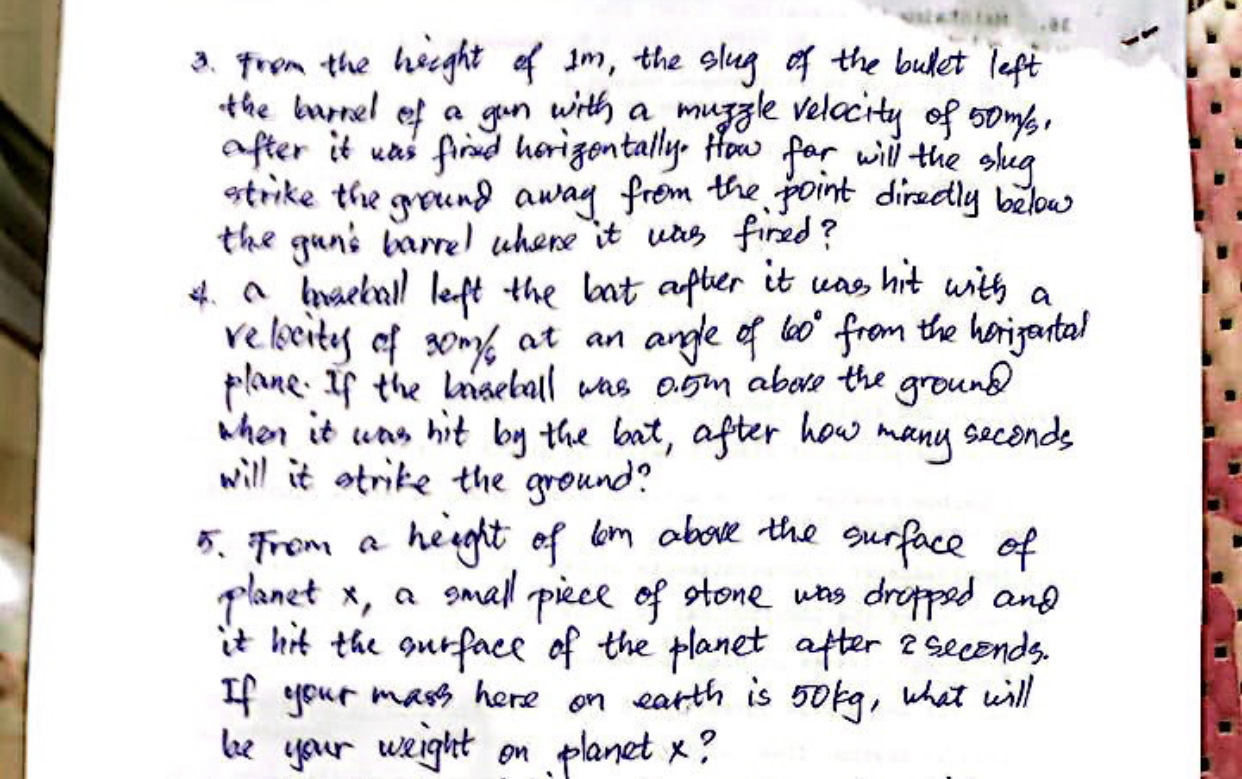 3. From the height of 1m, the slug of the bullet left
the barrel of a gun with a muzzle velocity of 50m/s,
after it was fired horizontally. How far will the slug
strike the ground away from the point directly below
the gun's barrel where it was fired?
4. A baseball left the bat after it was hit with a
velocity of 30m/s at an angle of 60° from the horizontal
plane. If the baseball was 0.5m above the ground
when it was hit by the bat, after how many seconds
will it strike the ground?
5. From a height of 6m above the surface of
planet x, a small piece of stone was dropped and
it hit the surface of the planet after 2 seconds.
If your mass here on earth is 50kg, what will
be your weight on planet x?